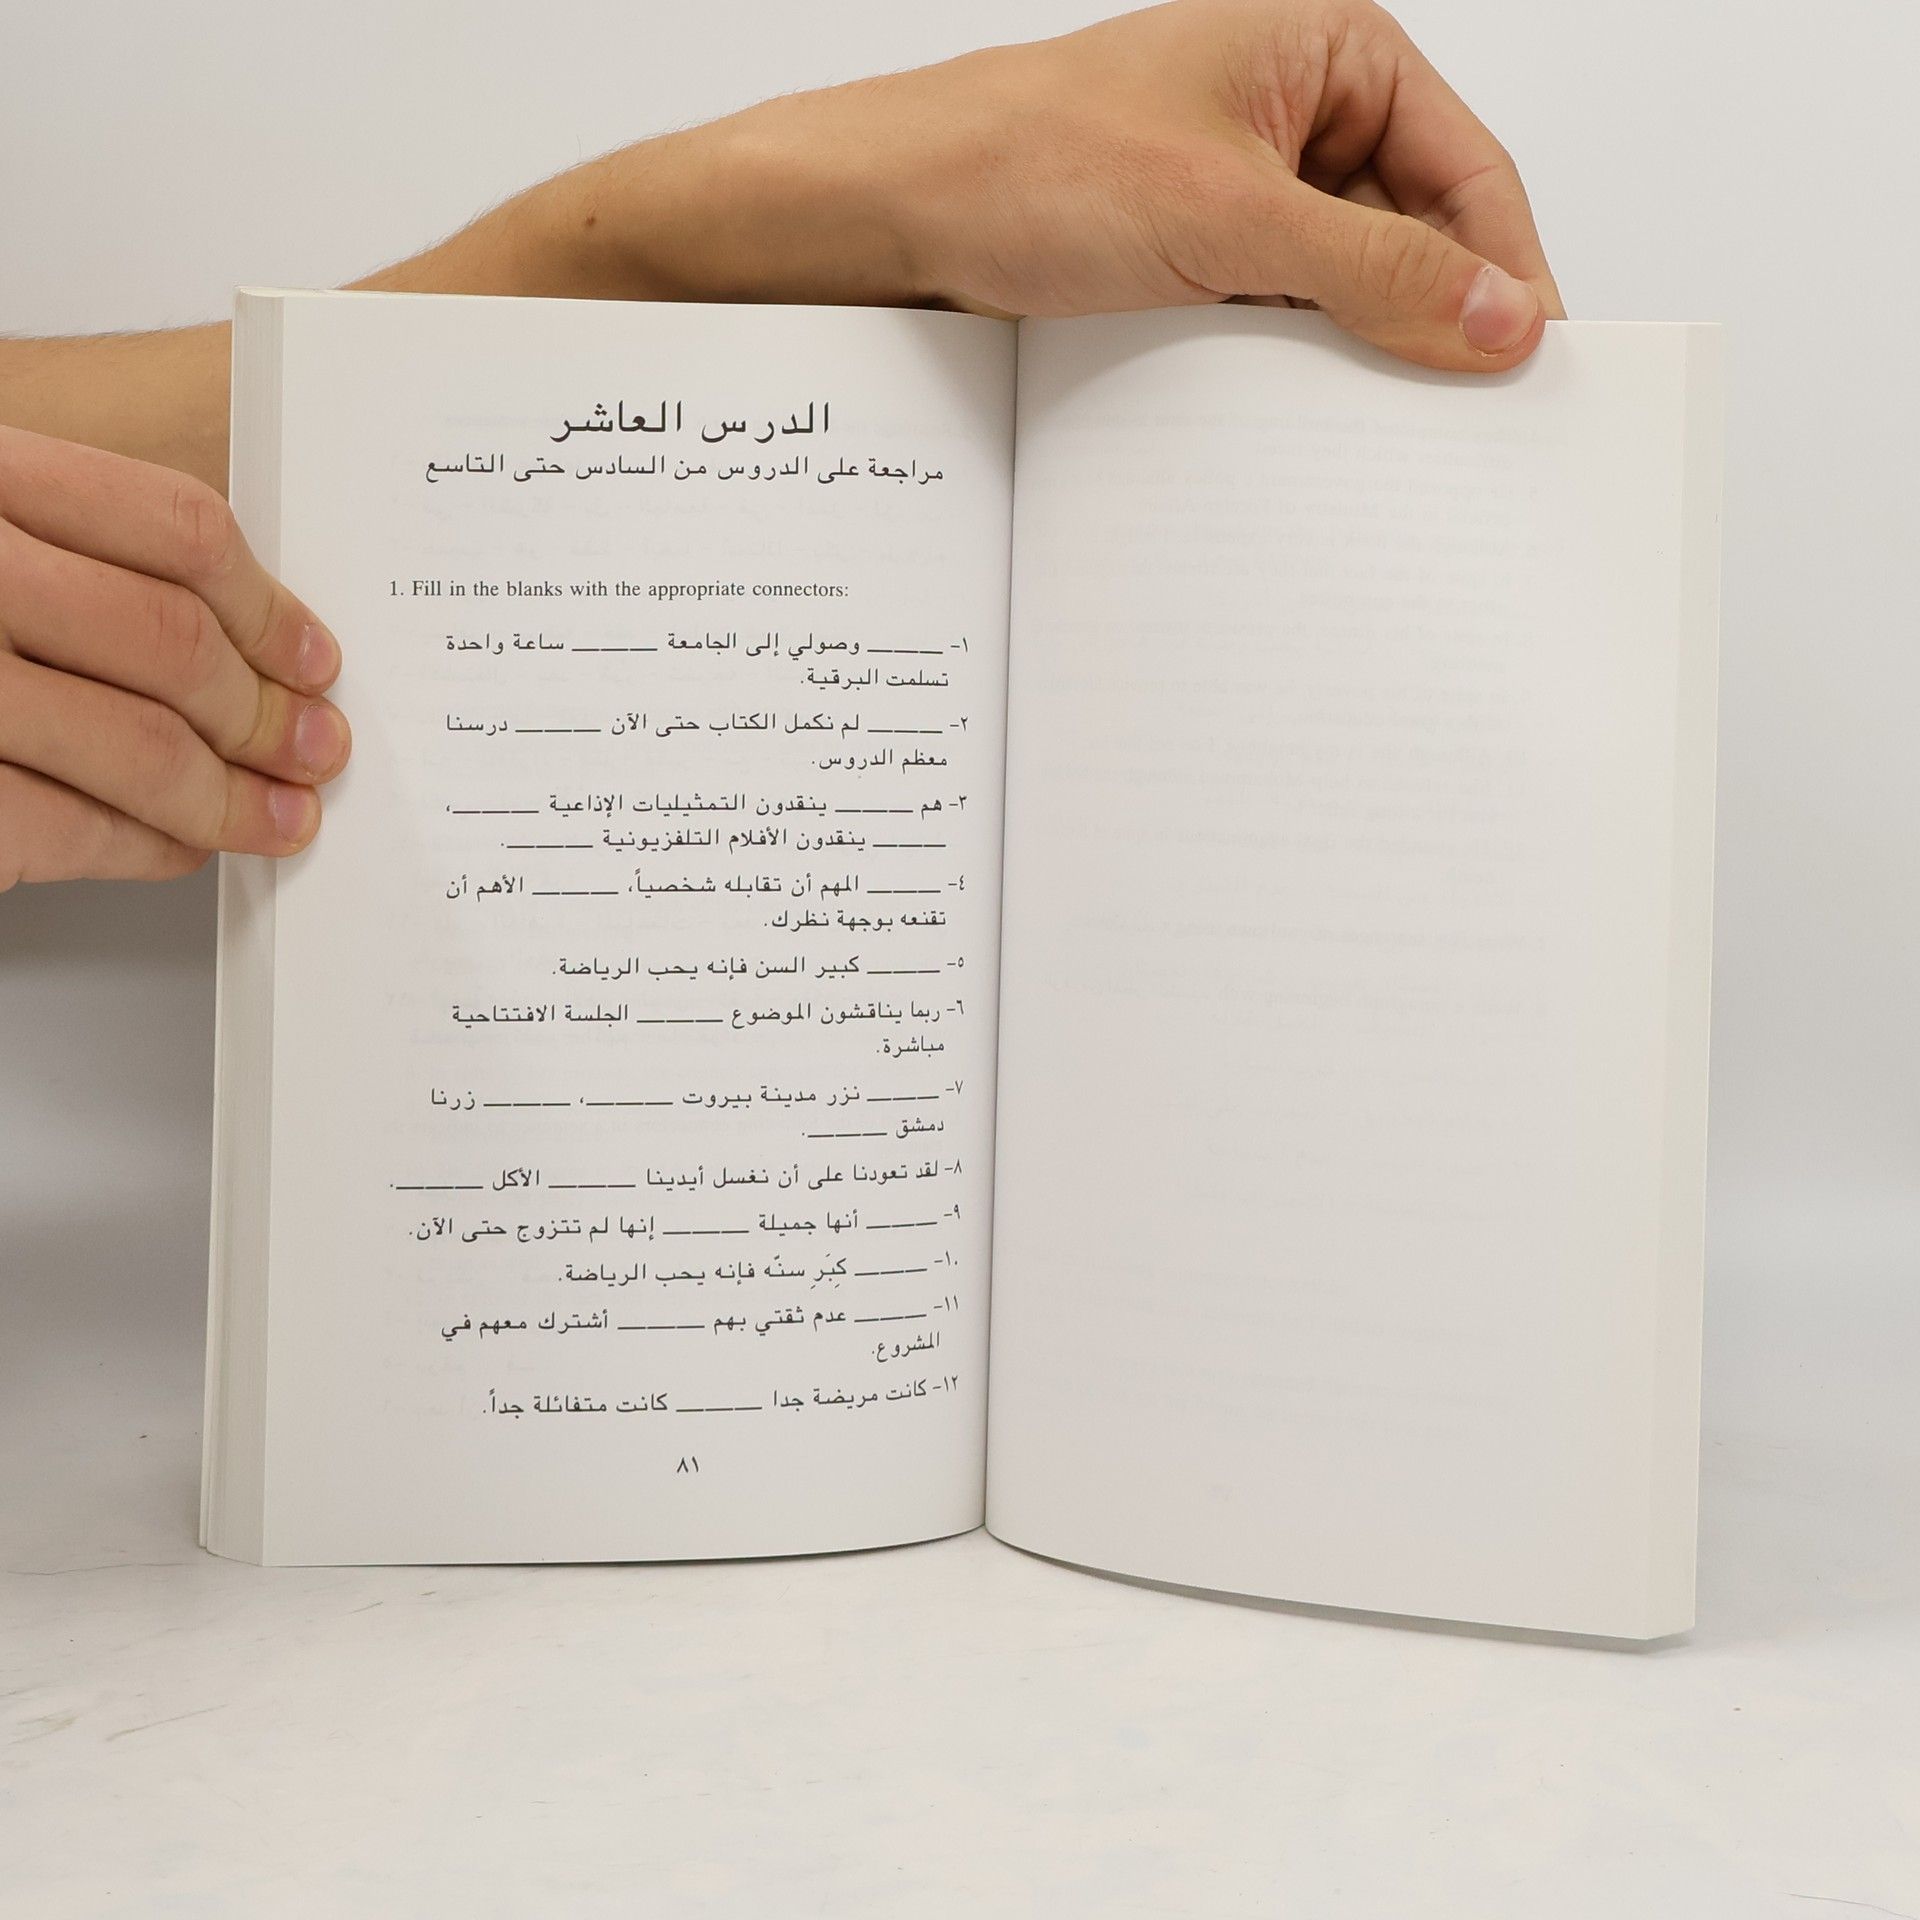 الدرس العاشر
مراجعة على الدروس من السادس حتى التاسع
1. Fill in the blanks with the appropriate connectors:
١- ______ وصولي إلى الجامعة ______ ساعة واحدة
تسلمت البرقية.
٢- ______ لم نكمل الكتاب حتى الآن ______ درسنا
معظم الدروس.
٣- هم ______ ينقدون التمثيليات الإذاعية ______،
______ ينقدون الأفلام التلفزيونية ______.
٤- ______ المهم أن تقابله شخصياً، ______ الأهم أن
تقنعه بوجهة نظرك.
٥- ______ كبير السن فإنه يحب الرياضة.
٦- ربما يناقشون الموضوع ______ الجلسة الافتتاحية
مباشرة.
٧- ______ نزر مدينة بيروت ______، ______ زرنا
دمشق ______.
٨- لقد تعودنا على أن نغسل أيدينا ______ الأكل ______.
٩- ______ أنها جميلة ______ إنها لم تتزوج حتى الآن.
١٠- ______ كِبَرِ سنّه فإنه يحب الرياضة.
١١- ______ عدم ثقتي بهم ______ أشترك معهم في
المشروع.
١٢- كانت مريضة جدا ______ كانت متفائلة جداً.
٨١